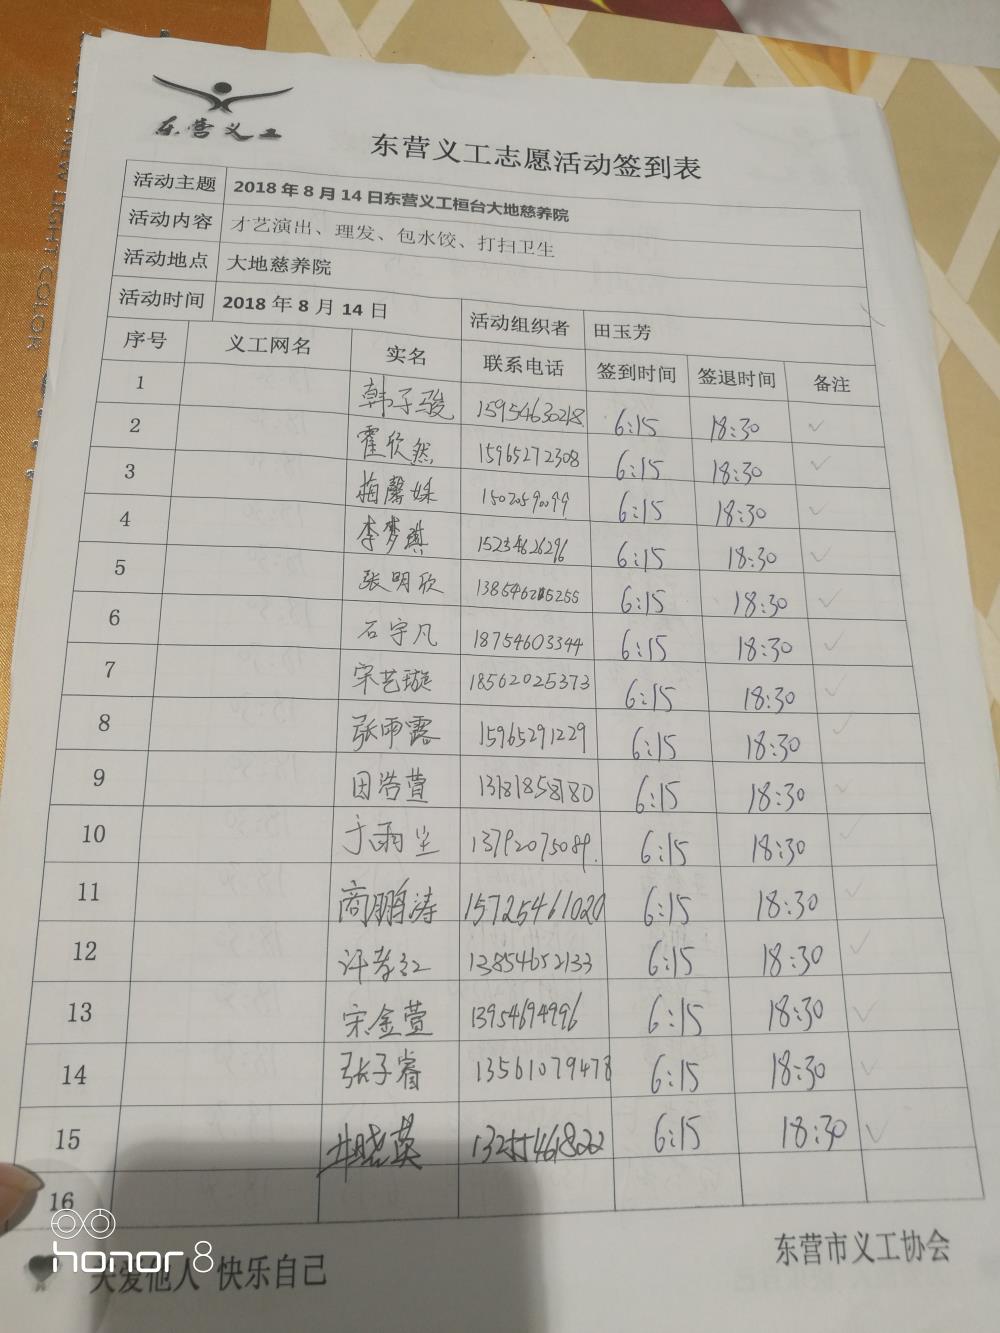 东营义工
东营义工志愿活动签到表
活动主题 2018年8月14日东营义工桓台大地慈养院
活动内容 才艺演出、理发、包水饺、打扫卫生
活动地点 大地慈养院
活动时间 2018年8月14日 活动组织者 田玉芳
序号 义工网名 实名 联系电话 签到时间 签退时间 备注
1 韩子骏 15954630218 6:15 18:30 ✓
2 霍欣然 15965272308 6:15 18:30 ✓
3 梅馨姝 15020590099 6:15 18:30 ✓
4 李梦琪 15234626296 6:15 18:30 ✓
5 张明欣 6:15 18:30 ✓
6 石宇凡 18754603344 6:15 18:30 ✓
7 宋艺璇 18562025373 6:15 18:30 ✓
8 张雨露 15965291229 6:15 18:30 ✓
9 田浩萱 13181858780 6:15 18:30 ✓
10 于雨尘 13792075089. 6:15 18:30 ✓
11 商鹏涛 15725461020 6:15 18:30 ✓
12 许孝红 13854652133 6:15 18:30 ✓
13 宋金萱 13954694996 6:15 18:30 ✓
14 张子睿 13561079478 6:15 18:30 ✓
15 13255461822 6:15 18:30 ✓
16
关爱他人 快乐自己
东营市义工协会
honor 8
COLOR